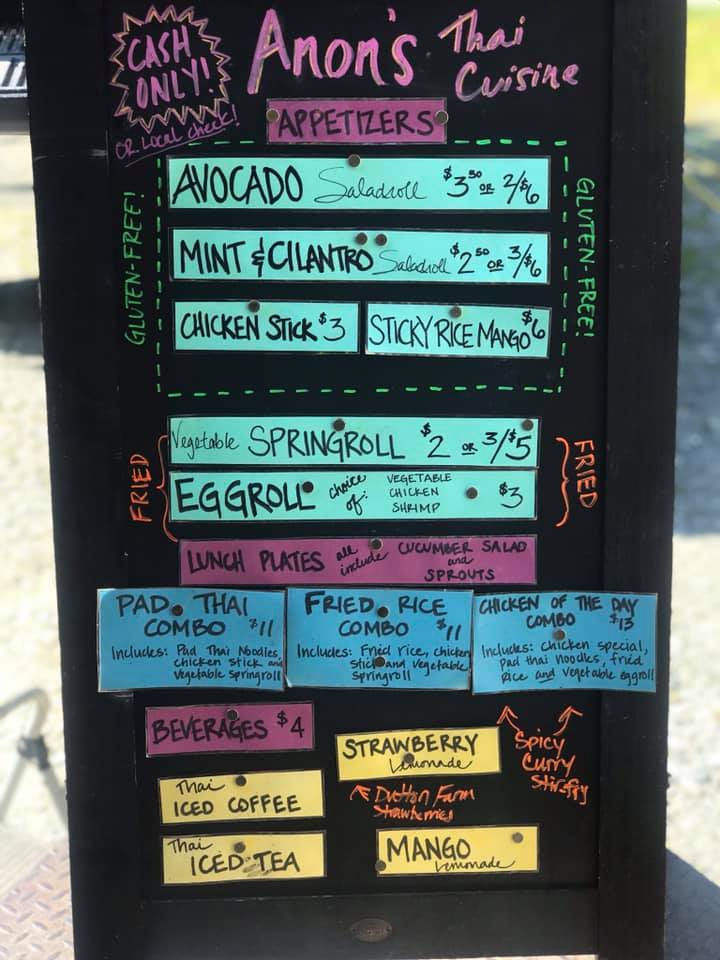 CASH ONLY!
OR Local check!
Anon's Thai Cuisine
APPETIZERS
GLUTEN-FREE!
GLUTEN-FREE!
AVOCADO Saladroll $3.50 OR 2/$6
MINT & CILANTRO Saladroll $2.50 OR 3/$6
CHICKEN STICK $3
STICKY RICE MANGO $6
FRIED
FRIED
Vegetable SPRINGROLL $2 OR 3/$5
EGGROLL choice of: VEGETABLE CHICKEN SHRIMP $3
LUNCH PLATES all include CUCUMBER SALAD and SPROUTS
PAD THAI
COMBO $11
Includes: Pad Thai Noodles,
chicken stick and
vegetable springroll
FRIED RICE
COMBO $11
Includes: Fried rice, chicken
stick and vegetable
springroll
CHICKEN OF THE DAY
COMBO $13
Includes: chicken special,
Pad thai noodles, fried
rice and vegetable eggroll
Spicy
Curry
Stirfry
BEVERAGES $4
STRAWBERRY
Lemonade
Dutton Farm
Strawberries
Thai
ICED COFFEE
Thai
ICED TEA
MANGO
Lemonade